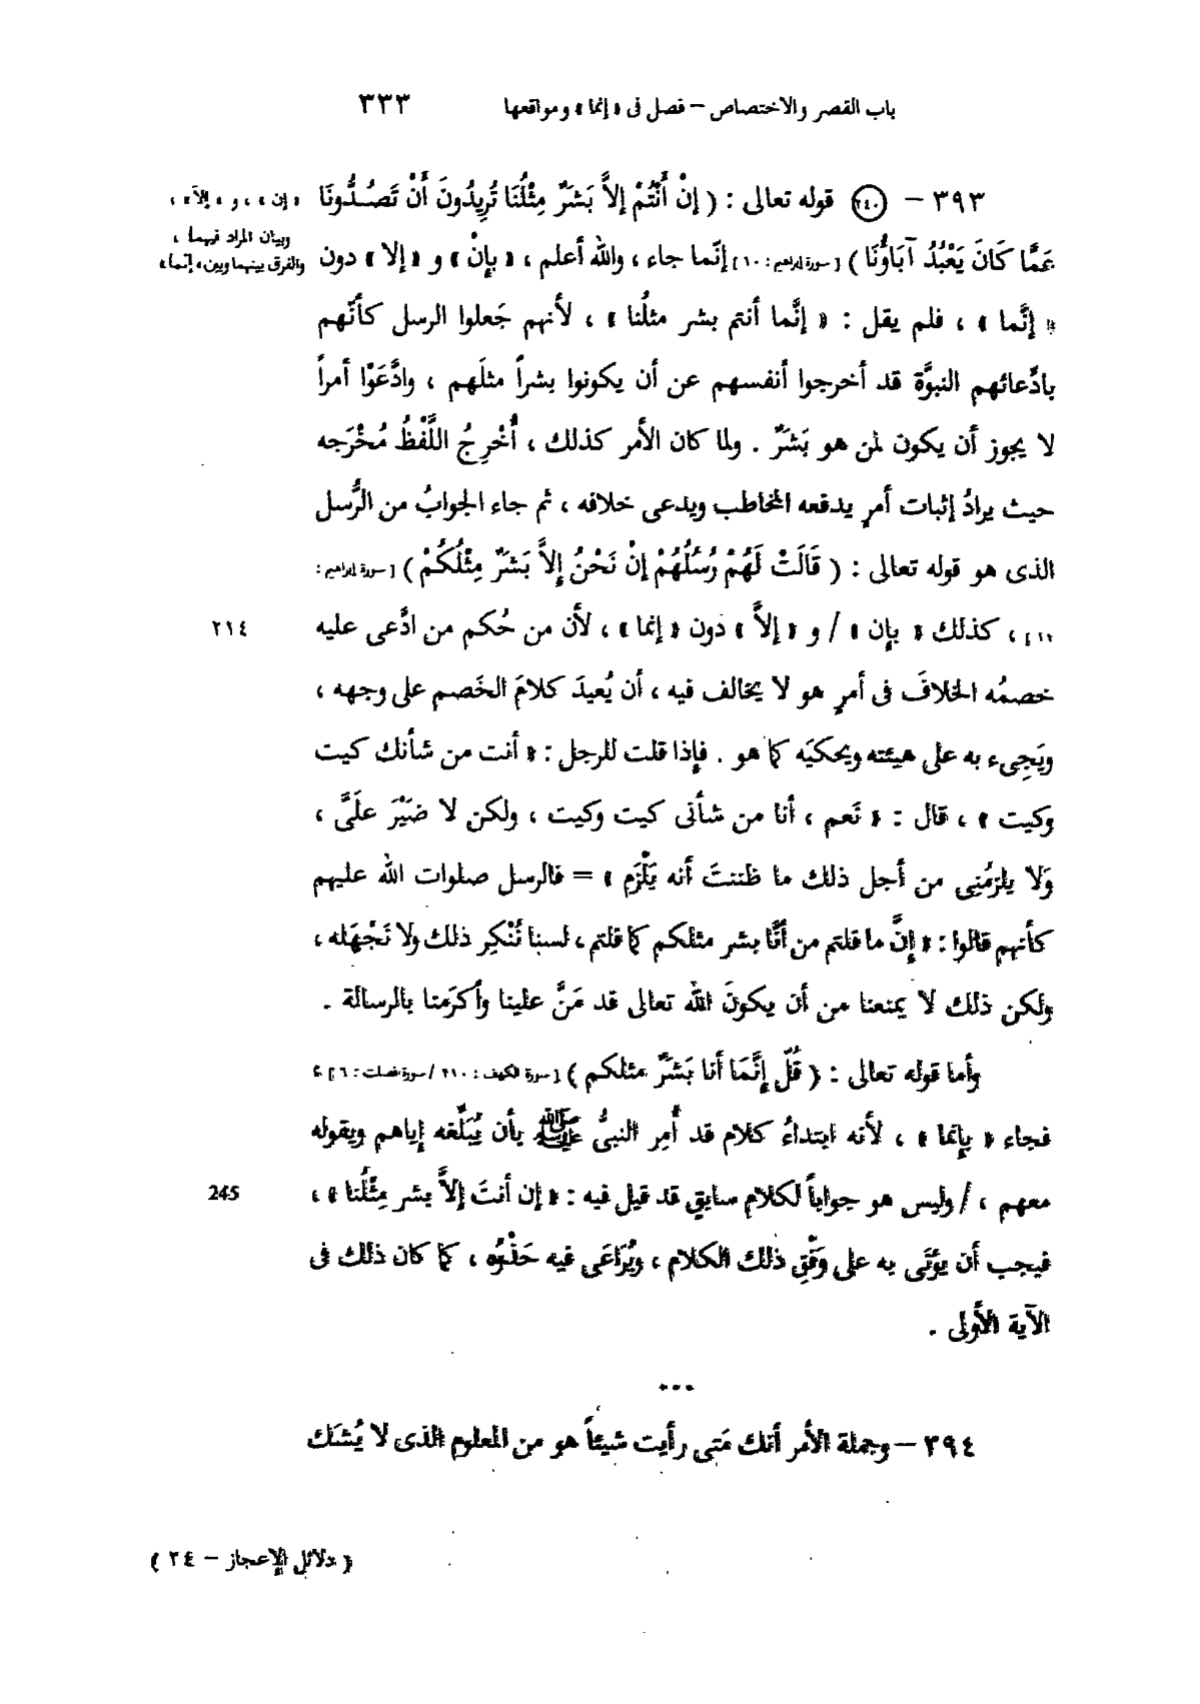 باب القصر والاختصاص – فصل فى « إنما » ومواقعها ٣٣٣
٣٩٣ – (٢٤٠) قوله تعالى : ( إِنْ أَنْتُمْ إِلاَّ بَشَرٌ مِثْلُنَا تُرِيدُونَ أَنْ تَصُدُّونَا
« إن » ، و « إلاّ » ،
وبيان المراد فيهما ،
والفرق بينهما وبين « إنما »
عَمَّا كَانَ يَعْبُدُ آبَاؤُنَا ) [ سورة إبراهيم : ١٠ ] إنّما جاء ، والله أعلم ، « بإنْ » و « إلا » دون
« إنَّما » ، فلم يقل : « إنَّما أنتم بشر مثلُنا » ، لأنهم جَعلوا الرسل كأنّهم
بادِّعائهم النبوَّة قد أخرجوا أنفسهم عن أن يكونوا بشراً مثلَهم ، وادَّعَوْا أمراً
لا يجوز أن يكون لمن هو بَشَرٌ . ولما كان الأمر كذلك ، أُخْرِجُ اللَّفْظُ مُخْرَجه
حيث يرادُ إثبات أمرٍ يدفعه المخاطب ويدعى خلافه ، ثم جاء الجوابُ من الرُّسل
الذى هو قوله تعالى : ( قَالَتْ لَهُمْ رُسُلُهُمْ إِنْ نَحْنُ إِلاَّ بَشَرٌ مِثْلُكُمْ ) [ سورة إبراهيم :
١١ ] ، كذلك « بإن » / و « إلاَّ » دون « إنما » ، لأن من حُكم من ادَّعى عليه ٢١٤
خصمُه الخلافَ فى أمرٍ هو لا يخالف فيه ، أن يُعيدَ كلامَ الخَصم على وجهه ،
ويَجِىء به على هيئته ويحكيَه كما هو . فإِذا قلت للرجل : « أنت من شأنك كيت
وكيت » ، قال : « نَعم ، أنا من شأنى كيت وكيت ، ولكن لا ضَيْرَ علَىَّ ،
وَلا يلزمُنِى من أجل ذلك ما ظننتَ أنه يَلْزَم » = فالرسل صلوات الله عليهم
كأنهم قالوا : « إنَّ ما قلتم من أنَّا بشر مثلكم كما قلتم ، لسنا نُنْكِر ذلك ولا نَجْهَله ،
ولكن ذلك لا يمنعنا من أن يكونَ الله تعالى قد مَنَّ علينا وأكرَمنا بالرسالة .
وأما قوله تعالى : ( قُلْ إِنَّمَا أنا بَشَرٌ مثلكم ) [ سورة الكهف : ١١٠ / سورة فصلت : ٦ ] ،
فجاء « بإِنما » ، لأنه ابتداءُ كلام قد أُمِر النبىُّ ﷺ بأن يُبَلِّغه إياهم ويقوله
معهم ، / وليس هو جواباً لكلام سابقٍ قد قيل فيه : « إن أنتَ إلاَّ بشر مِثْلُنا » ، 245
فيجب أن يؤتَى به على وَفْقِ ذلك الكلام ، ويُرَاعَى فيه حَذْوُه ، كما كان ذلك فى
الآية الأولى .
•••
٣٩٤ – وجملة الأمر أنك مَتى رأيت شيئاً هو من المعلوم الذى لا يُشَك
( دلائل الإعجاز – ٢٤ )